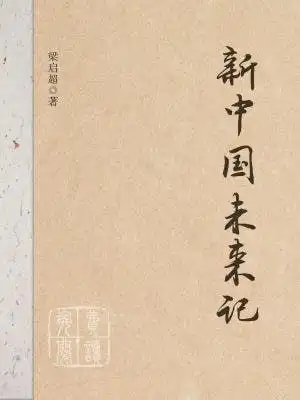 新中国未来记
梁启超◎著